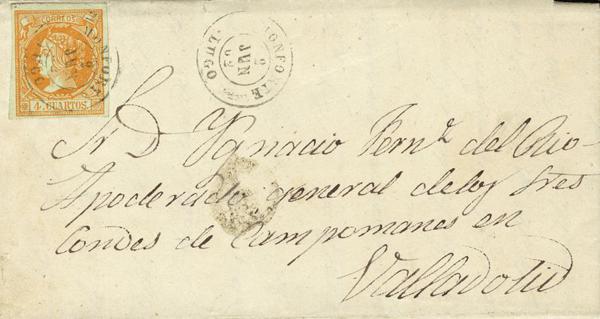 CORREOS
4 CUARTOS
MONFORTE
LUGO
MONFORTE
JUN
62
LUGO
Sr D Ygnacio Fernz del Rio
Apoderado general de los Sres
Condes de Campomanes en
Valladolid